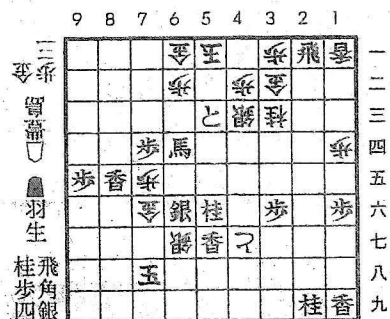 9 8 7 6 5 4 3 2 1
金 玉 歩 飛 香 一
歩 歩 金 二
と 銀 桂 三
歩 馬 歩 四
歩 香 歩 五
金 銀 桂 歩 歩 六
銀 香 と 七
玉 八
桂 香 九
豊島
金歩三
羽生
飛角銀
桂歩四